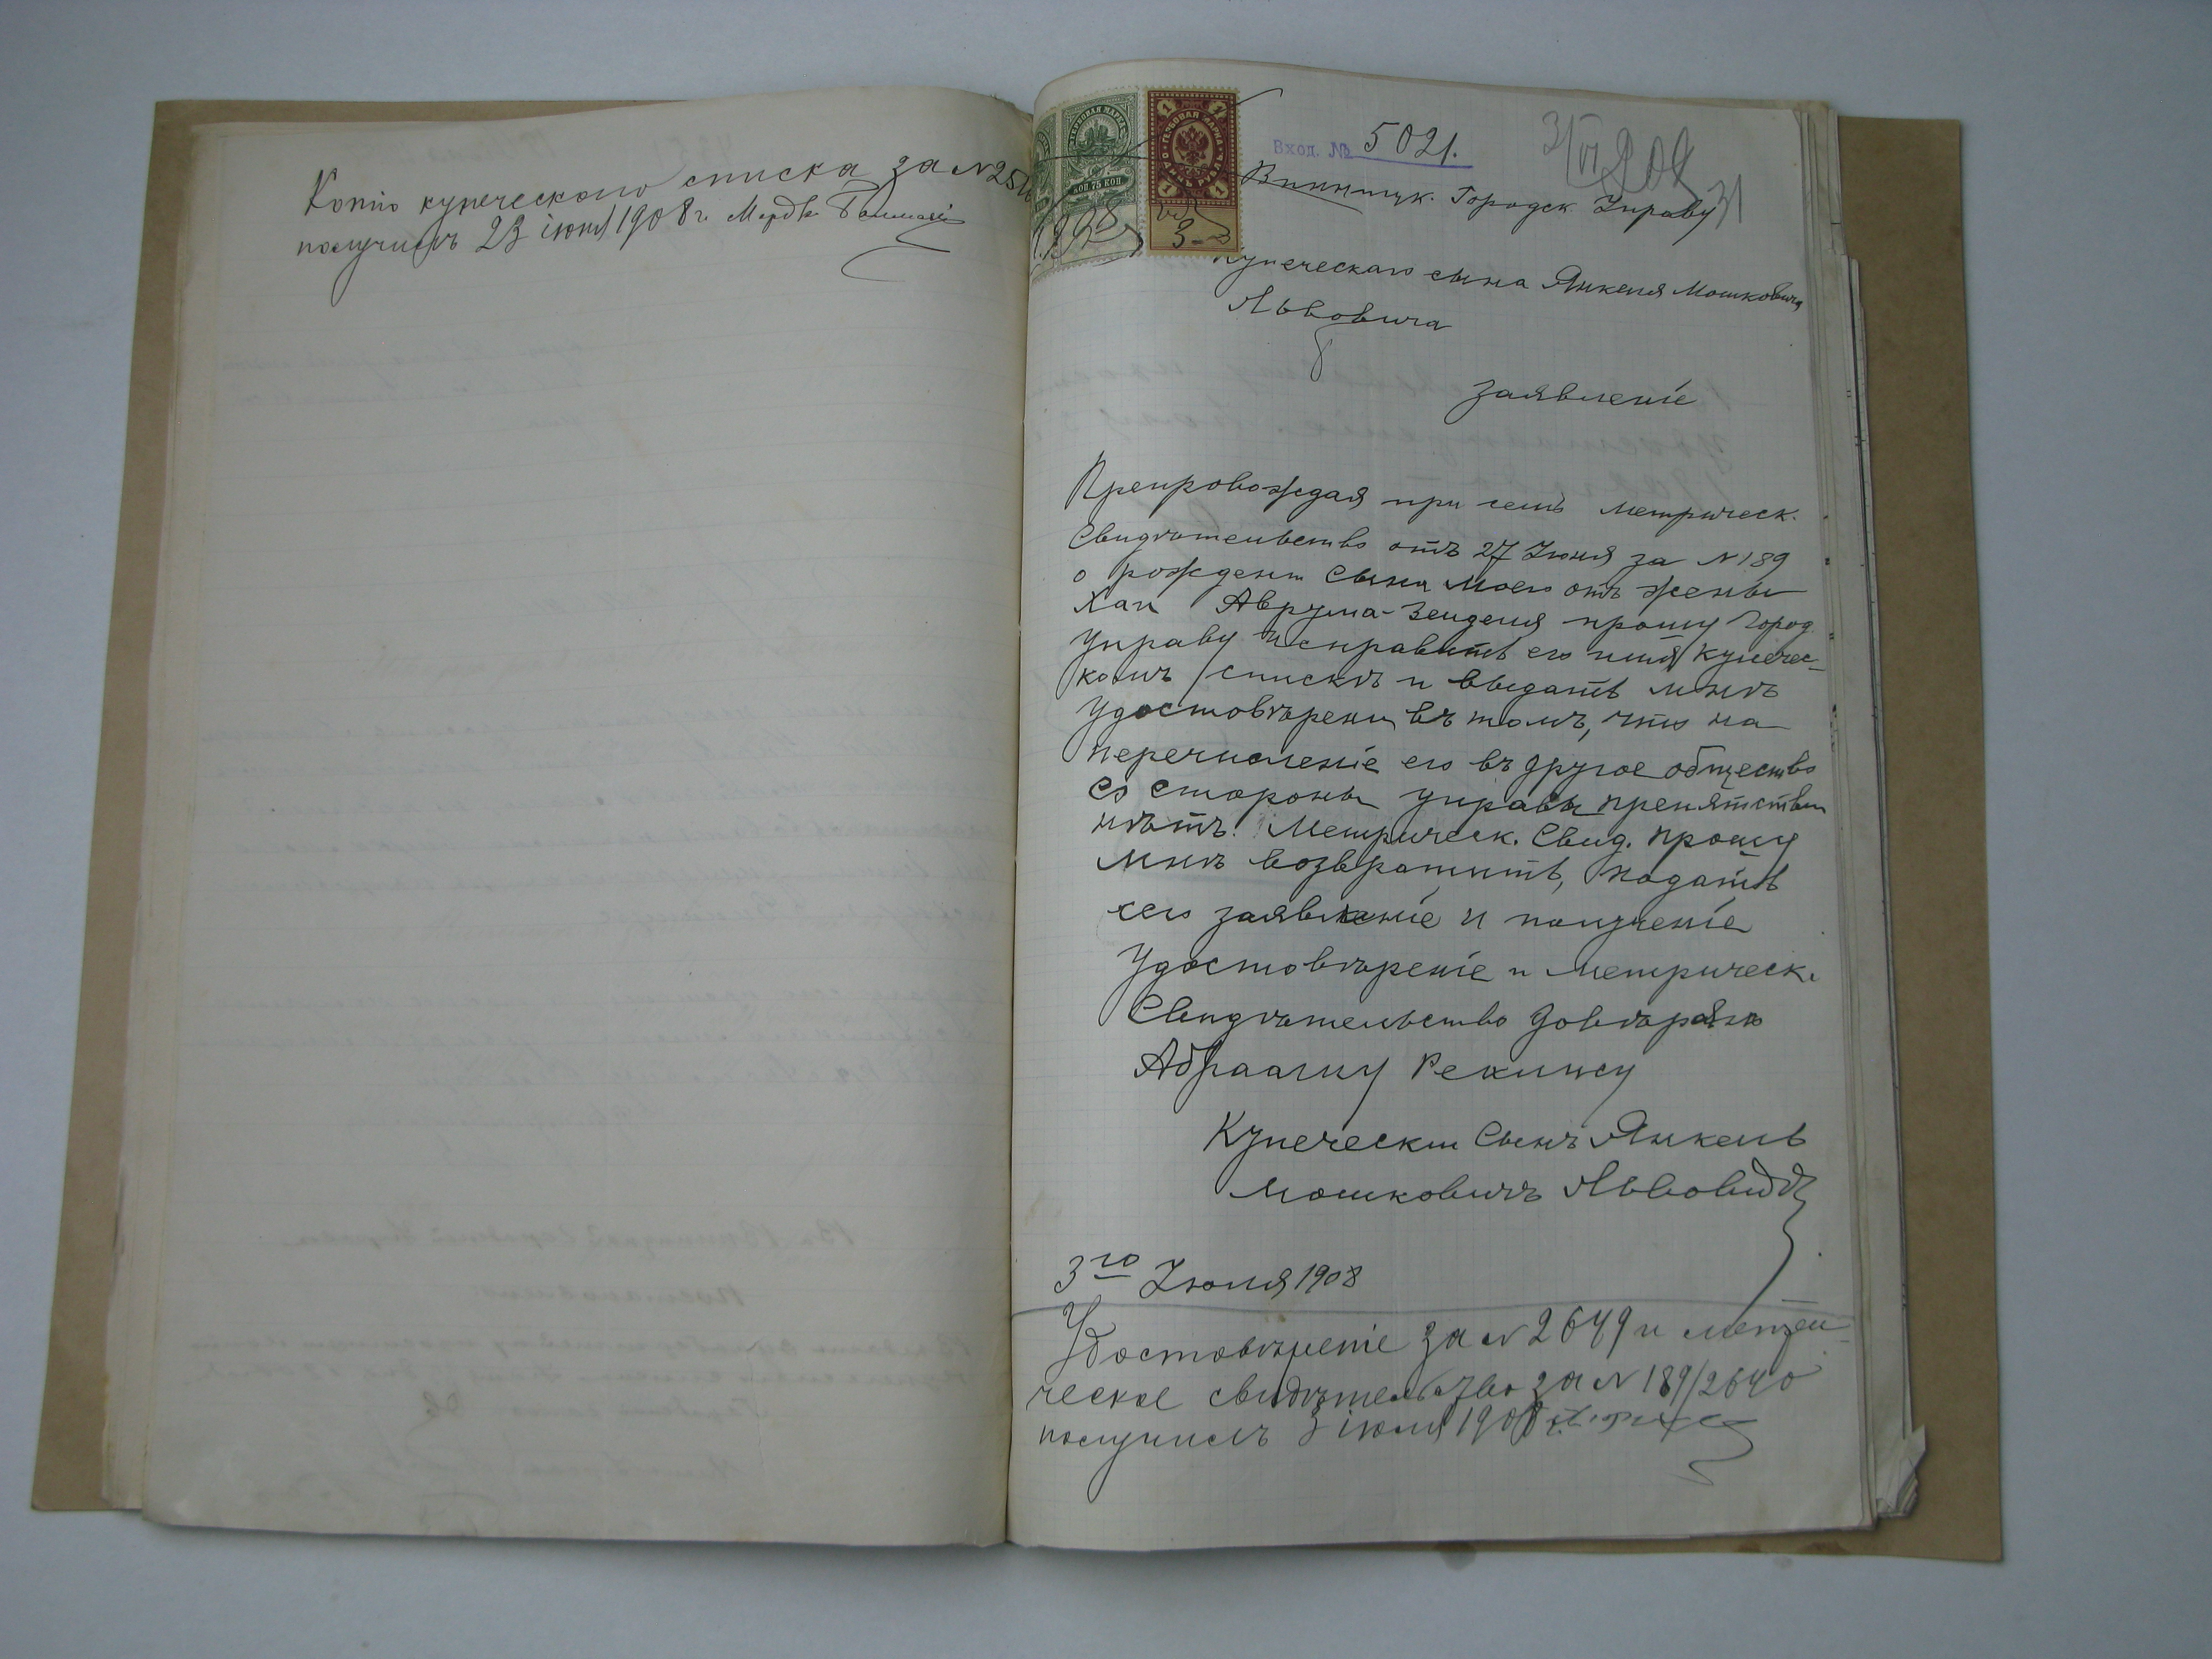 Копію купеческаго списка за №
получилъ 23 іюня 1908 г. Мордко
ГЕРБОВАЯ МАРКА
75 КОП
ГЕРБОВАЯ МАРКА
ОДИНЪ РУБЛЬ
1
Вход. № 5021.
Винницк. Городск Управу
31
Купеческаго сына Янкеля Мошковича
Львовича
заявленіе
Препровождая при семъ метрическ.
Свидѣтельство отъ 27 Іюня за № 189
о рожденіи Сына моего отъ жены
Хаи Аврума-Зейделя прошу Город.
Управу исправить его имя купечес-
комъ спискѣ и выдать мнѣ
Удостовѣрени въ томъ, что на
перечисленіе его въ другое общество
со стороны управы препятствіи
нѣтъ. Метрическ. Свид. прошу
мнѣ возвратить, подать
сего заявленіе и полученіе
Удостовѣреніе и метрическ.
Свидѣтельство довѣряю
Абрааму
Купеческій Сынъ Янкель
Мошковичъ Львовичъ
3го Іюля 1908
Удостовѣреніе за № 2649 и метри-
ческое свидѣтельство за № 189/2640
получилъ 3 іюля 1908 г.